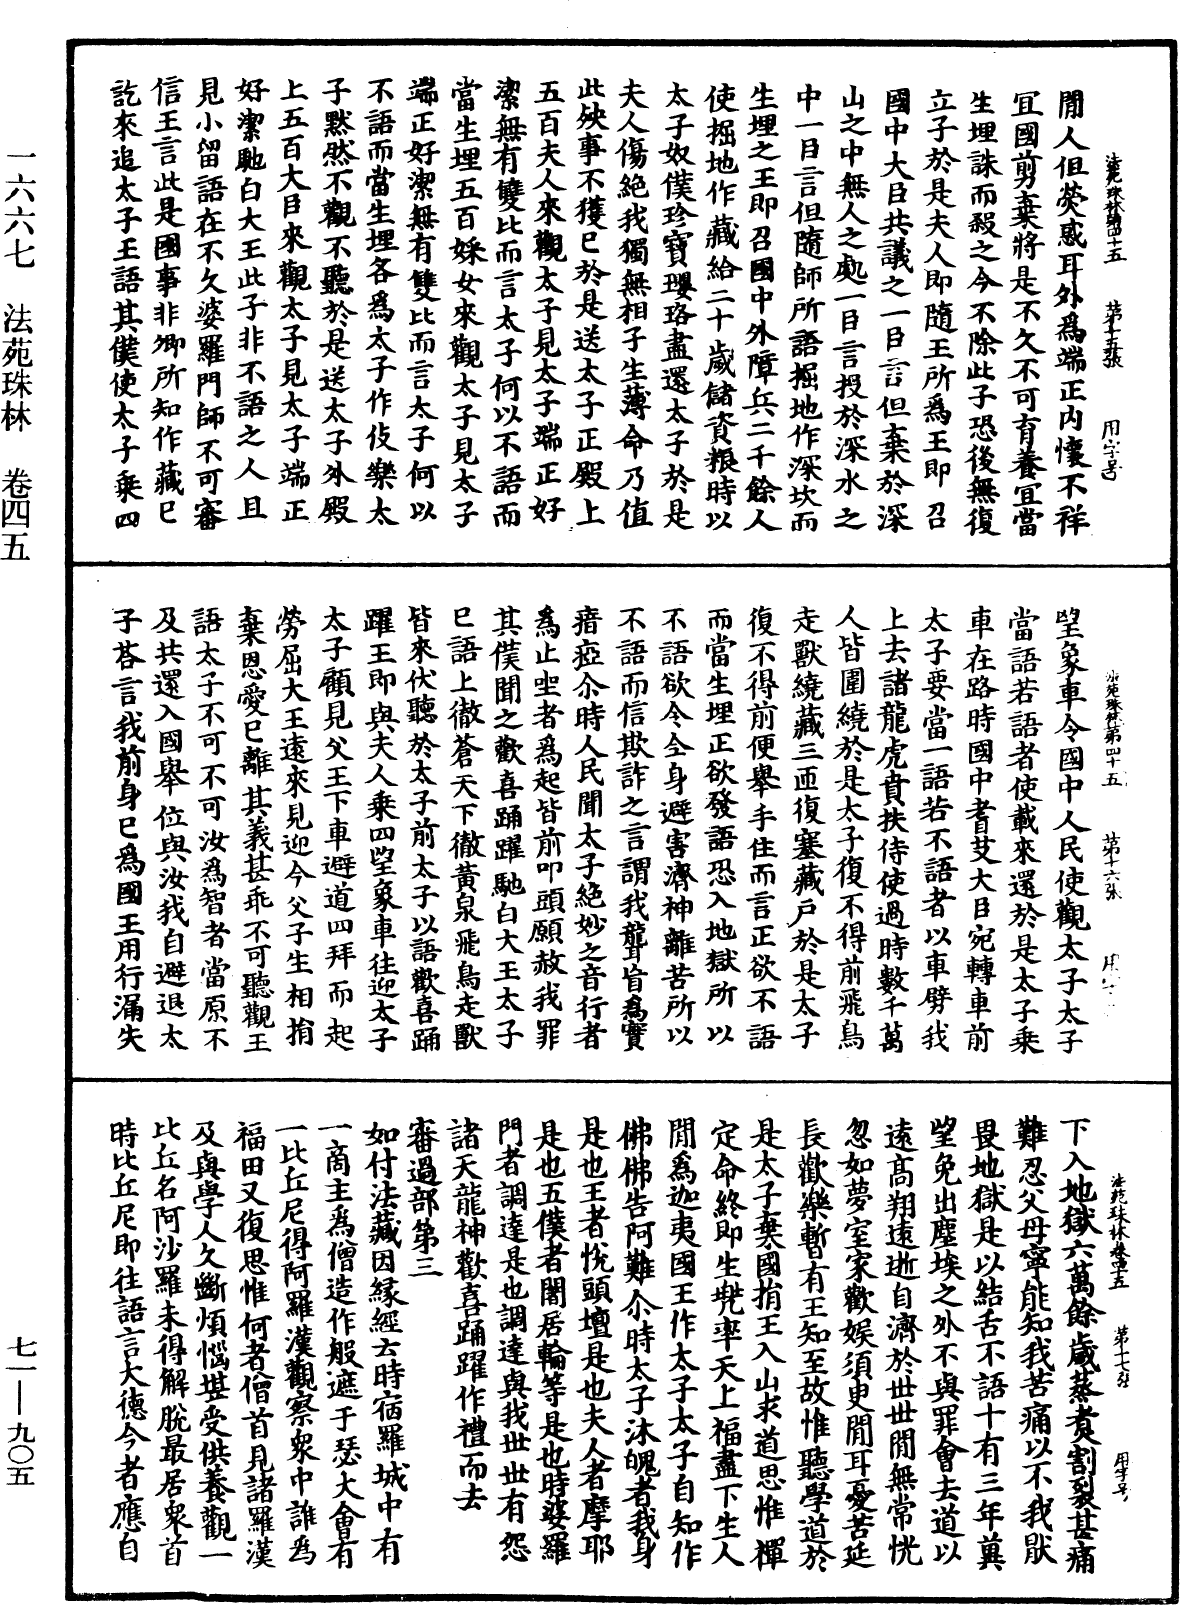 一六六七　法苑珠林　卷四五
七一—九〇五
法苑珠林第四十五　第十五張　用字号
間人但熒惑耳外爲端正内懷不祥
宜國前剪棄將是不久不可育養宜當
生埋誅而殺之今不除此子恐後無復
立子於是夫人即隨王所爲王即召
國中大臣共議之一臣言但棄於深
山之中無人之處一臣言投於深水之
中一臣言但隨師所語掘地作深坎而
生埋之王即召國中外障兵二千餘人
使掘地作藏給二十歲儲資粮時以
太子奴僕珍寶瓔珞盡還太子於是
夫人傷絕我獨無相子生薄命乃值
此殃事不獲已於是送太子正殿上
五百夫人來觀太子見太子端正好
潔無有雙比而言太子何以不語而
當生埋五百婇女來觀太子見太子
端正好潔無有雙比而言太子何以
不語而當生埋各爲太子作伎樂太
子默然不觀不聽於是送太子外殿
上五百大臣來觀太子見太子端正
好潔馳白大王此子非不語之人且
見小留語在不久婆羅門師不可審
信王言此是國事非卿所知作藏已
訖來追太子王語其僕使太子乘四
法苑珠林第四十五　第十六张　用
望象車令國中人民使觀太子太子
當語若語者使載來還於是太子乘
車在路時國中耆艾大臣宛轉車前
太子要當一語若不語者以車劈我
上去諸龍虎賁扶侍使過時數千萬
人皆圍繞於是太子復不得前飛鳥
走獸繞藏三匝復塞藏戶於是太子
復不得前便舉手住而言正欲不語
而當生埋正欲發語恐入地獄所以
不語欲令全身避害濟神離苦所以
不語而信欺詐之言謂我聾盲爲實
瘖瘂尒時人民聞太子絕妙之音行者
爲止坐者爲起皆前叩頭願赦我罪
其僕聞之歡喜踊躍馳白大王太子
已語上徹蒼天下徹黃泉飛鳥走獸
皆來伏聽於太子前太子以語歡喜踊
躍王即與夫人乘四望象車往迎太子
太子顧見父王下車避道四拜而起
勞屈大王遠來見迎今父子生相捐
棄恩愛已離其義甚乖不可聽觀王
語太子不可不可汝爲智者當原不
及共還入國舉位與汝我自避退太
子荅言我前身已爲國王用行漏失
法苑珠林卷四五　第十七張　用字号
下入地獄六萬餘歲蒸煮割裂甚痛
難忍父母寧能知我苦痛以不我厭
畏地獄是以結舌不語十有三年冀
望免出塵埃之外不與罪會去道以
遠高翔遠逝自濟於世世間無常恍
忽如夢室家歡娛須臾間耳憂苦延
長歡樂暫有王知至故惟聽學道於
是太子棄國捐王入山求道思惟禪
定命終即生兜率天上福盡下生人
間爲迦夷國王作太子太子自知作
佛佛告阿難尒時太子沐魄者我身
是也王者悅頭壇是也夫人者摩耶
是也五僕者闍居輪等是也時婆羅
門者調達是也調達與我世世有怨
諸天龍神歡喜踊躍作禮而去
審過部第三
如付法藏因緣經云時宿羅城中有
一商主爲僧造作般遮于瑟大會有
一比丘尼得阿羅漢觀察衆中誰爲
福田又復思惟何者僧首見諸羅漢
及與學人久斷煩惱堪受供養觀一
比丘名阿沙羅未得解脫最居衆首
時比丘尼即往語言大德今者應自